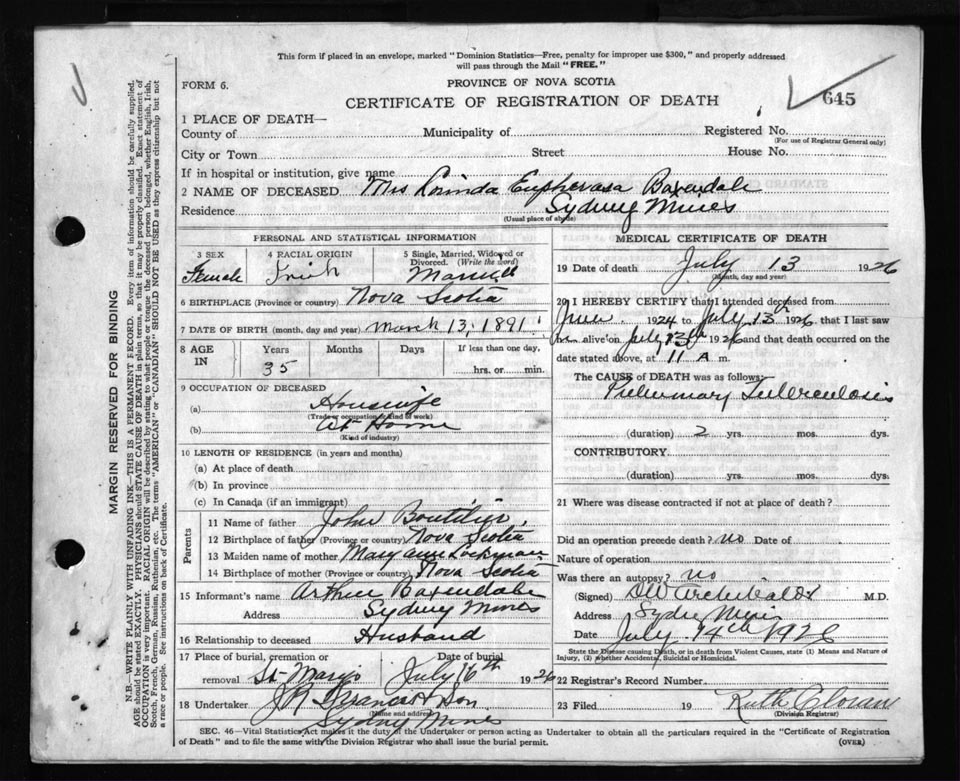 This form if placed in an envelope, marked "Dominion Statistics—Free, penalty for improper use $300," and properly addressed
will pass through the Mail "FREE."
FORM 6.
PROVINCE OF NOVA SCOTIA
CERTIFICATE OF REGISTRATION OF DEATH
645
1 PLACE OF DEATH—
County of Municipality of Registered No.
(For use of Registrar General only)
City or Town Street House No.
If in hospital or institution, give name
2 NAME OF DECEASED Mrs Baxendale
Residence Sydney Mines
(Usual place of abode)
PERSONAL AND STATISTICAL INFORMATION
3 SEX 4 RACIAL ORIGIN 5 Single, Married, Widowed or
Divorced. (Write the word)
Female Irish Married
6 BIRTHPLACE (Province or country) Nova Scotia
7 DATE OF BIRTH (month, day and year) March 13, 1891
8 AGE IN Years Months Days If less than one day,
35 hrs. or min.
9 OCCUPATION OF DECEASED
(a) Housewife
(Trade or occupation or kind of work)
(b) At Home
(Kind of industry)
10 LENGTH OF RESIDENCE (in years and months)
(a) At place of death
(b) In province
(c) In Canada (if an immigrant)
Parents
11 Name of father John Boutilier
12 Birthplace of father (Province or country) Nova Scotia
13 Maiden name of mother Mary Ann
14 Birthplace of mother (Province or country) Nova Scotia
15 Informant's name Arthur Baxendale
Address Sydney Mines
16 Relationship to deceased Husband
17 Place of burial, cremation or Date of burial
removal St Marys July 16th 1926
18 Undertaker J A Frances & Son
(Name and address)
Sydney Mines
MEDICAL CERTIFICATE OF DEATH
19 Date of death July 13 1926
(Month, day and year)
20 I HEREBY CERTIFY that I attended deceased from
June 1924 to July 13th 1926 that I last saw
her alive on July 13th 1926 and that death occurred on the
date stated above, at 11 A m.
The CAUSE of DEATH was as follows:
Pulmonary Tuberculosis
(duration) 2 yrs. mos. dys.
CONTRIBUTORY.
(duration) yrs. mos. dys.
21 Where was disease contracted if not at place of death?
Did an operation precede death? no Date of
Nature of operation
Was there an autopsy? no
(Signed) Archibald M.D.
Address Sydney Mines
Date July 14th 1926
State the Disease causing Death, or in death from Violent Causes, state (1) Means and Nature of
Injury, (2) whether Accidental, Suicidal or Homicidal.
22 Registrar's Record Number
23 Filed 19 Ruth Cloran
(Division Registrar)
SEC. 46—Vital Statistics Act makes it the duty of the Undertaker or person acting as Undertaker to obtain all the particulars required in the "Certificate of Registration
of Death" and to file the same with the Division Registrar who shall issue the burial permit. (OVER)
MARGIN RESERVED FOR BINDING
N.B.—WRITE PLAINLY WITH UNFADING INK—THIS IS A PERMANENT RECORD. Every item of information should be carefully supplied.
AGE should be stated EXACTLY. PHYSICIANS should STATE CAUSE OF DEATH in plain terms, so that it may be properly classified. Exact statement of
OCCUPATION is very important. RACIAL ORIGIN will be described by stating to what people or tongue the deceased person belonged, whether English, Irish,
Scotch, French, German, Russian, Ruthenian, etc. The terms "AMERICAN" or "CANADIAN" SHOULD NOT BE USED as they express citizenship but not
a race or people. See instructions on back of Certificate.